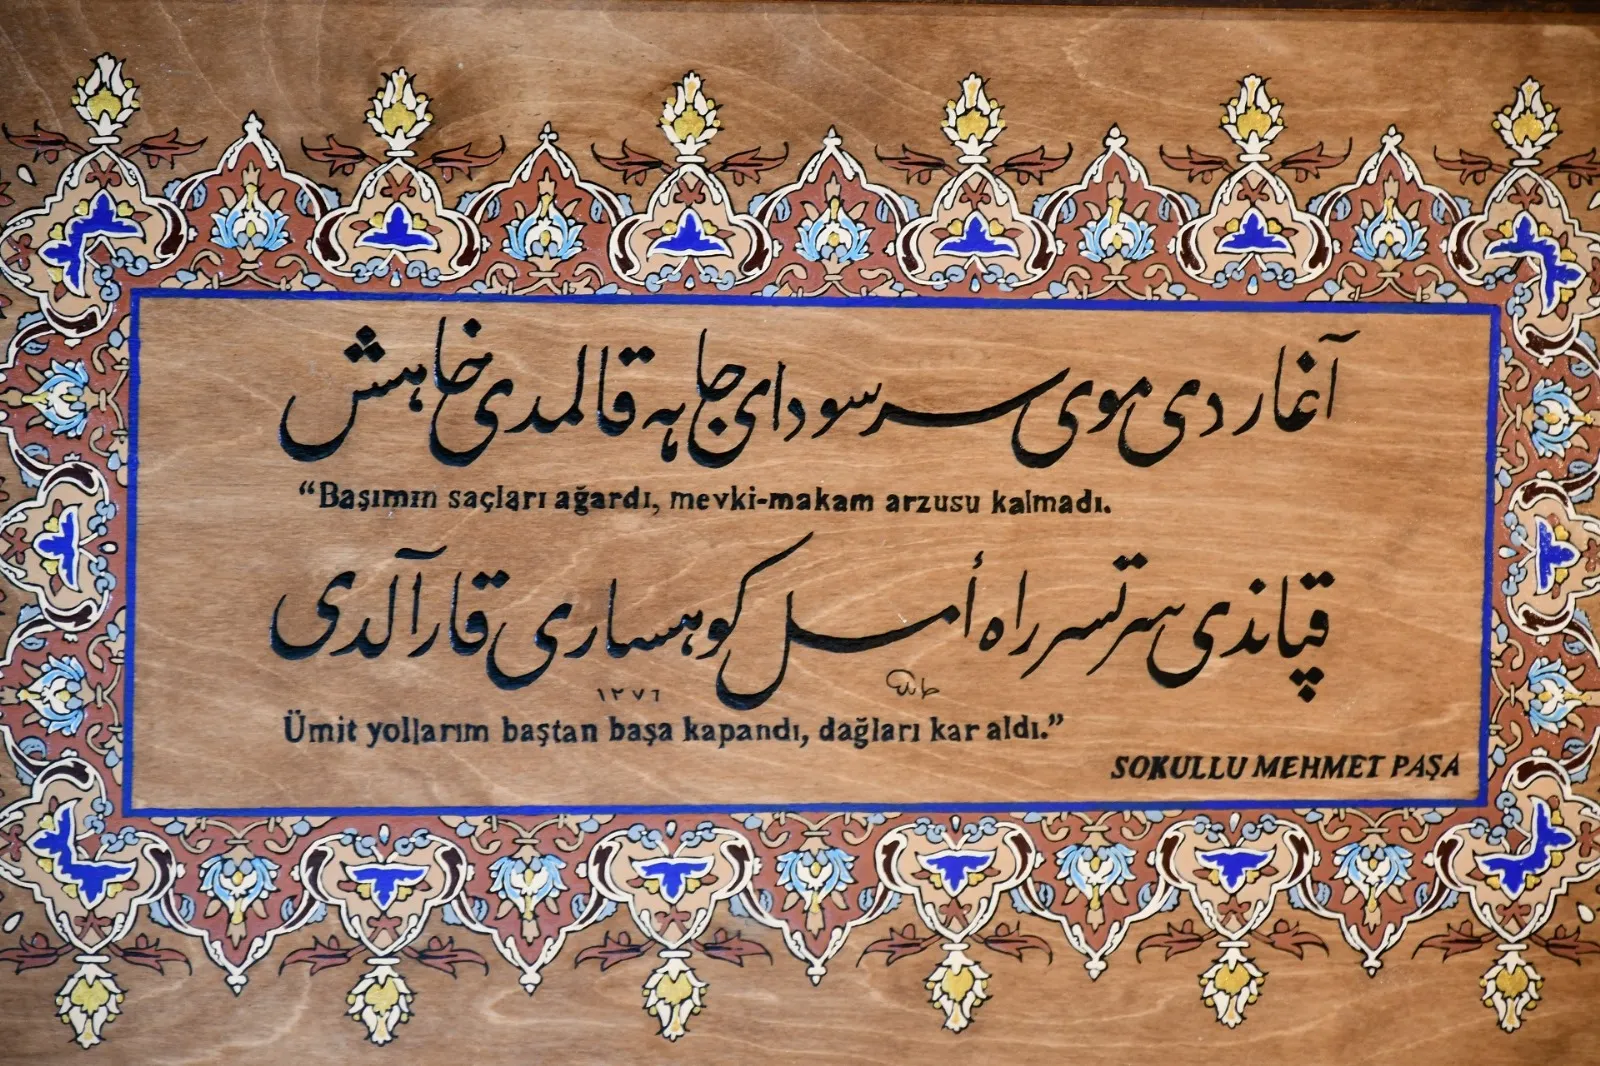 آغاردی موی سر سودای جاهه قالمدی خاهش
“Başımın saçları ağardı, mevki-makam arzusu kalmadı.
قپاندی سرتسر راه أمل کوهساری قار آلدی
١٢٧٦
Ümit yollarım baştan başa kapandı, dağları kar aldı.”
SOKULLU MEHMET PAŞA